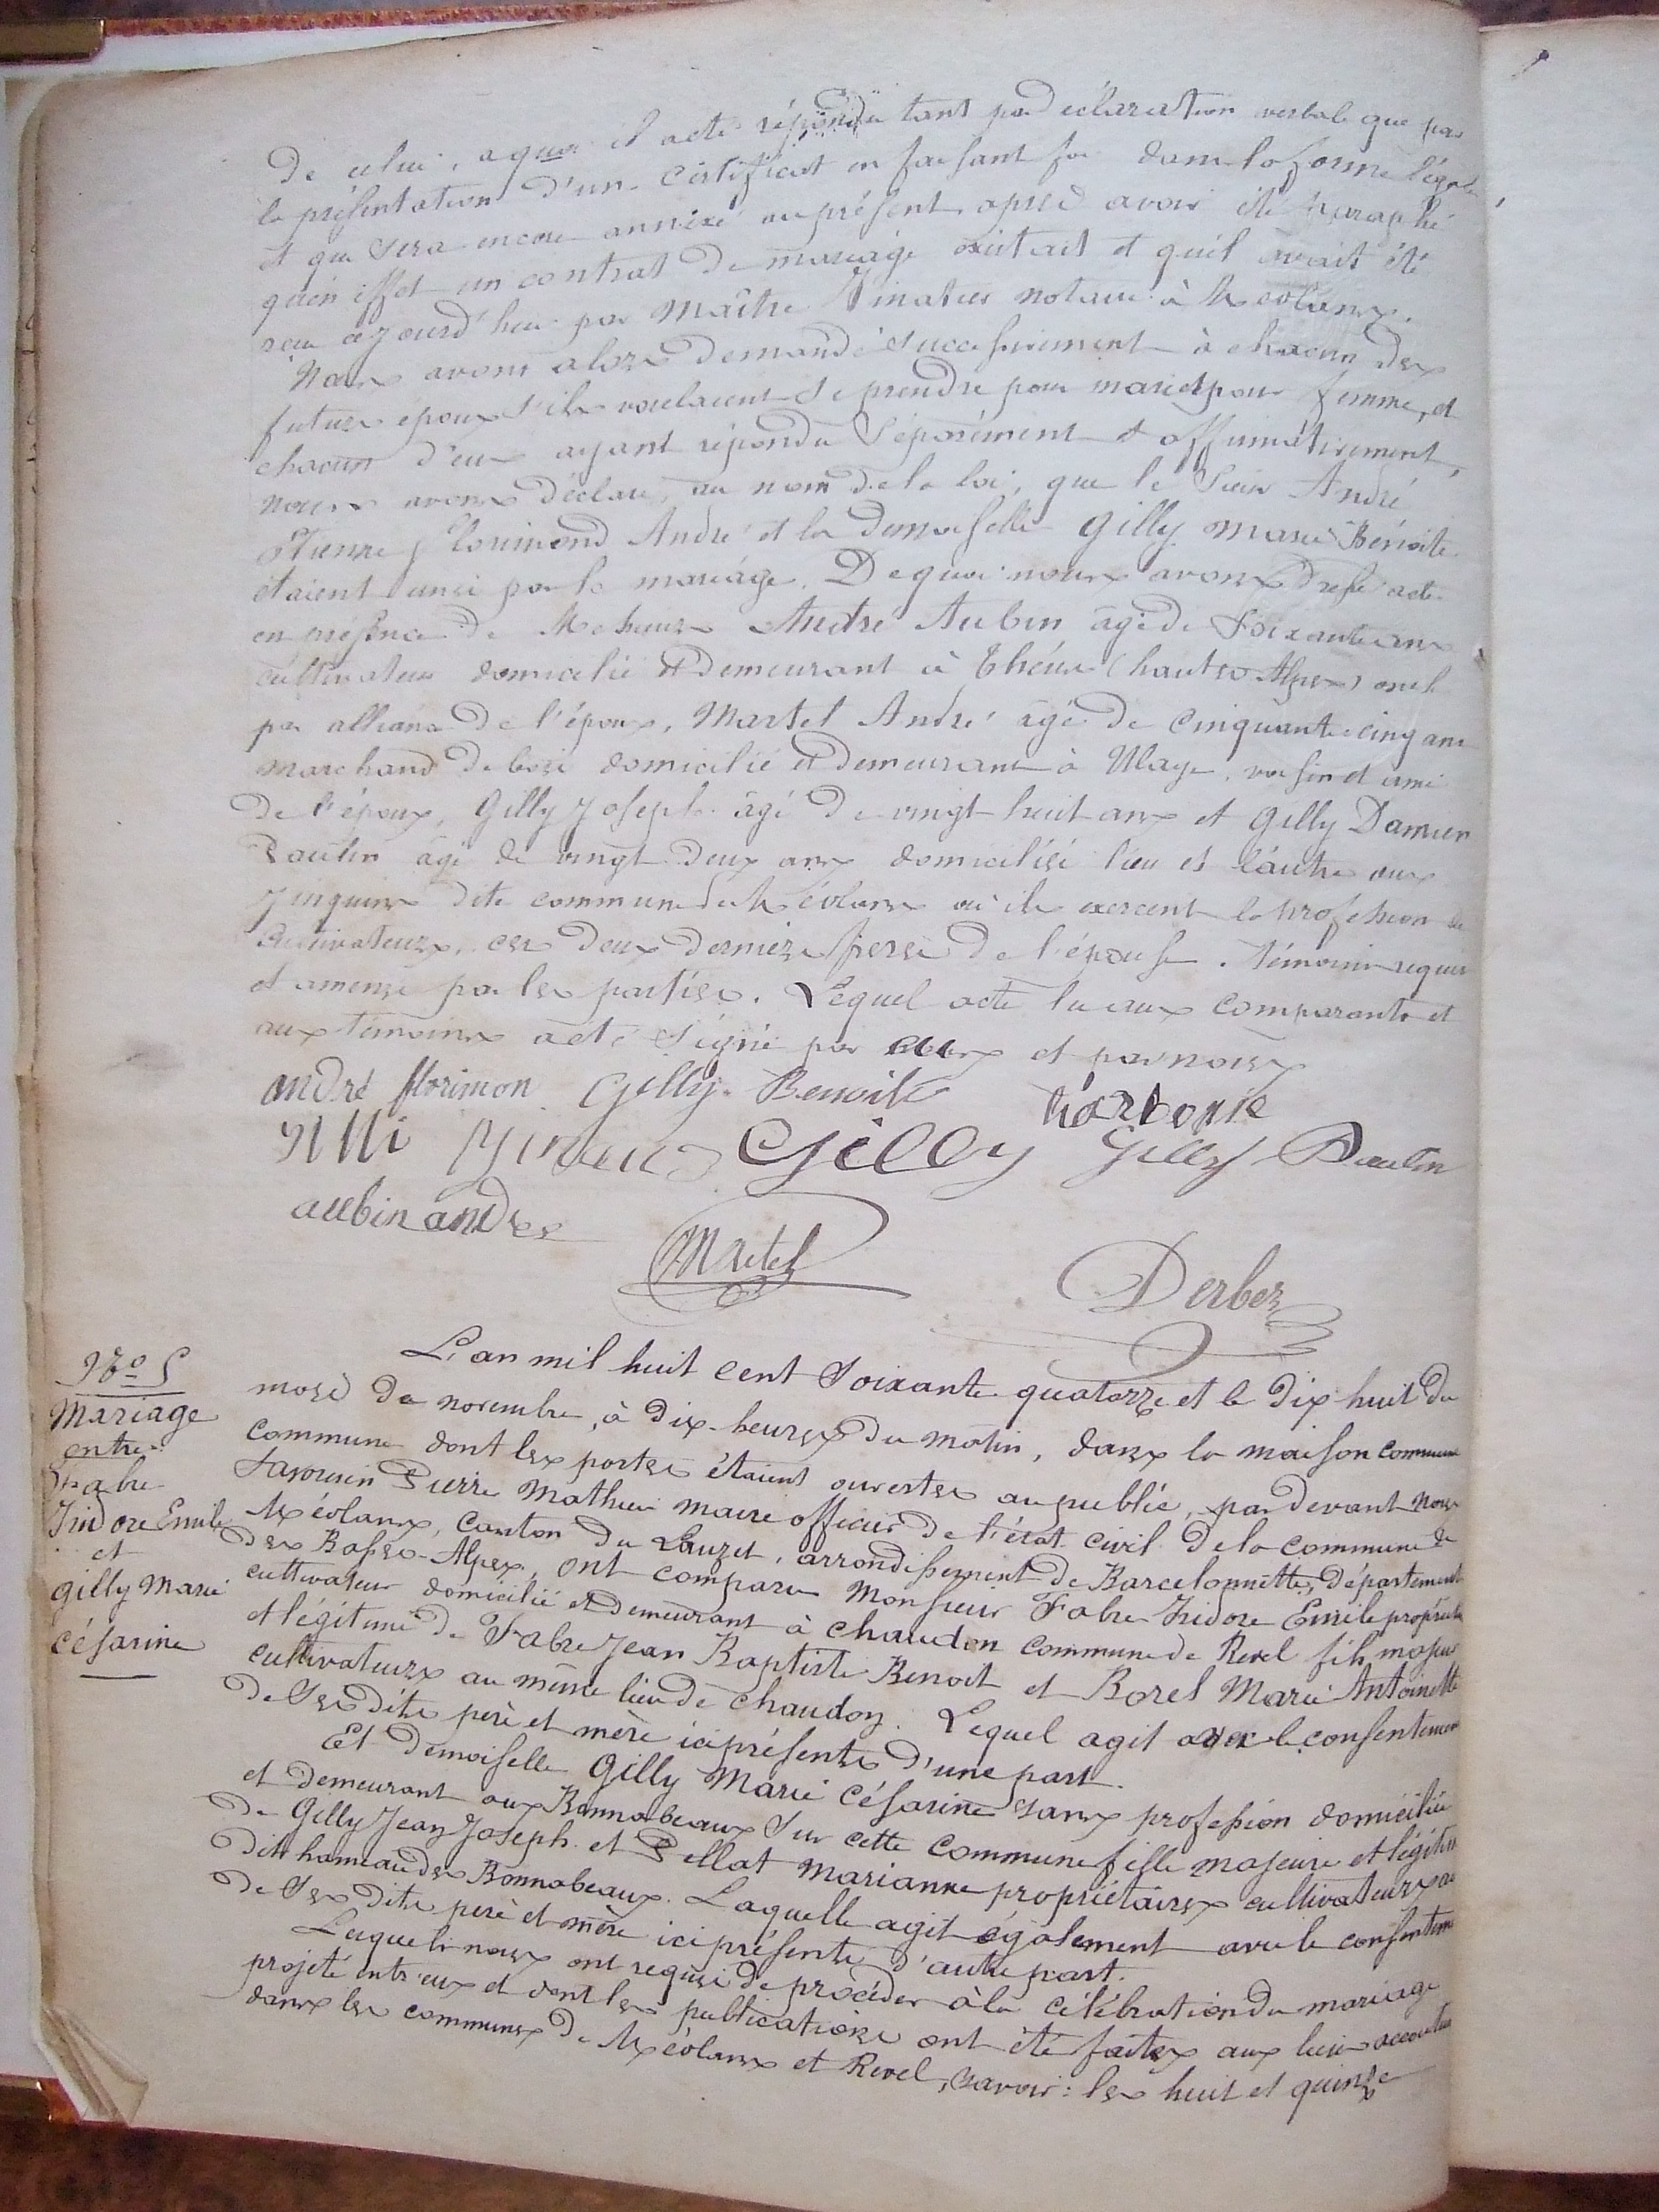 De celui, a quoi il a été répondu tant par déclaration verbale que par
la présentation d'un certificat en faisant foi dans la forme légale,
et qui sera encore annexé au présent après avoir été paraphé
qu'en effet un contrat de mariage existait et qu'il avait été
reçu aujourd'hui par Maître notaire à Méolans.
Nous avons alors demandé successivement à chacun des
futurs époux s'ils voulaient se prendre pour mari et pour femme, et
chacun d'eux ayant répondu séparément et affirmativement,
nous avons déclaré, au nom de la loi, que le Sieur André
Etienne Florimond André et la demoiselle Gilly Marie Bénoite
étaient unis par le mariage. De quoi nous avons dressé acte
en présence de Messieurs André Aubin âgé de soixante ans
cultivateur domicilié et demeurant à Théus (hautes Alpes) oncle
par alliance de l'époux, Martel André âgé de cinquante cinq ans
marchand de bois domicilié et demeurant à Ubaye, voisin et ami
de l'époux, Gilly Joseph âgé de vingt huit ans et Gilly Damien
Paulin âgé de vingt deux ans domiciliés l'un et l'autre aux
dite commune de Méolans où ils exercent la profession de
cultivateurs, ces deux derniers frères de l'épouse. témoins requis
et amenés par les parties. Lequel acte lu aux comparants et
aux témoins a été signé par et par nous
andré florimon Gilly Benoite
Gilly Gilly Paulin
aubin andre
Martel Derbez
No 5
Mariage
entre
Fabre
Isidore Emile
et
Gilly Marie
Césarine
L'an mil huit cent soixante quatorze et le dix huit du
mois de novembre, à dix heures du matin, dans la maison commune
commune dont les portes étaient ouvertes au public, par devant nous
Pierre Mathieu maire officier de l'état civil de la commune de
Méolans, canton du Lauzet, arrondissement de Barcelonnette, département
des Basses-Alpes, ont comparu Monsieur Fabre Isidore Emile propriétaire
cultivateur domicilié et demeurant à Chaudon commune de Revel fils majeur
et légitime de Fabre Jean Baptiste Benoit et Borel Marie Antoinette
cultivateurs au même lieu de chaudon. Lequel agit avec le consentement
de ses dits père et mère ici présents d'une part.
Et demoiselle Gilly Marie Césarine sans profession domiciliée
et demeurant aux Bonnabeaux sur cette commune fille majeure et légitime
de Gilly Jean Joseph et Pellat Marianne propriétaires cultivateurs au
dit hameau des Bonnabeaux. Laquelle agit également avec le consentement
de ses dits père et mère ici présents d'autre part.
Lesquels nous ont requis de procéder à la célébration du mariage
projeté entr'eux et dont les publications ont été faites aux lieux accoutumés
dans les communes de Méolans et Revel, savoir : les huit et quinze